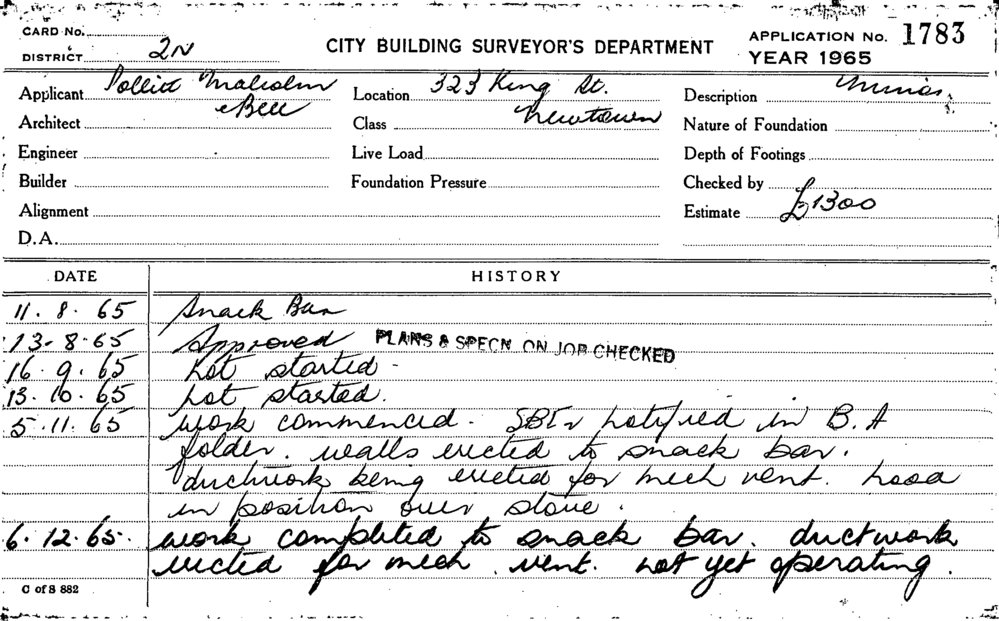 CARD No.
DISTRICT 2N
CITY BUILDING SURVEYOR'S DEPARTMENT
APPLICATION No. 1783
YEAR 1965
Applicant Malcolm
Bell
Architect
Engineer
Builder
Alignment
D.A.
Location 323 King St.
Class Newtown
Live Load
Foundation Pressure
Description Minor
Nature of Foundation
Depth of Footings
Checked by
Estimate £1300
DATE HISTORY
11. 8. 65 Snack Bar
13. 8. 65 Approved PLANS & SPECN. ON JOB CHECKED
16. 9. 65 Not started -
13. 10. 65 Not started.
5. 11. 65 work commenced. notified in B.A
folder. walls erected to snack bar.
ductwork being erected for mech vent. hood
in position over stove.
6. 12. 65. work completed to snack bar. ductwork
erected for mech. vent. not yet operating.
C of S 882